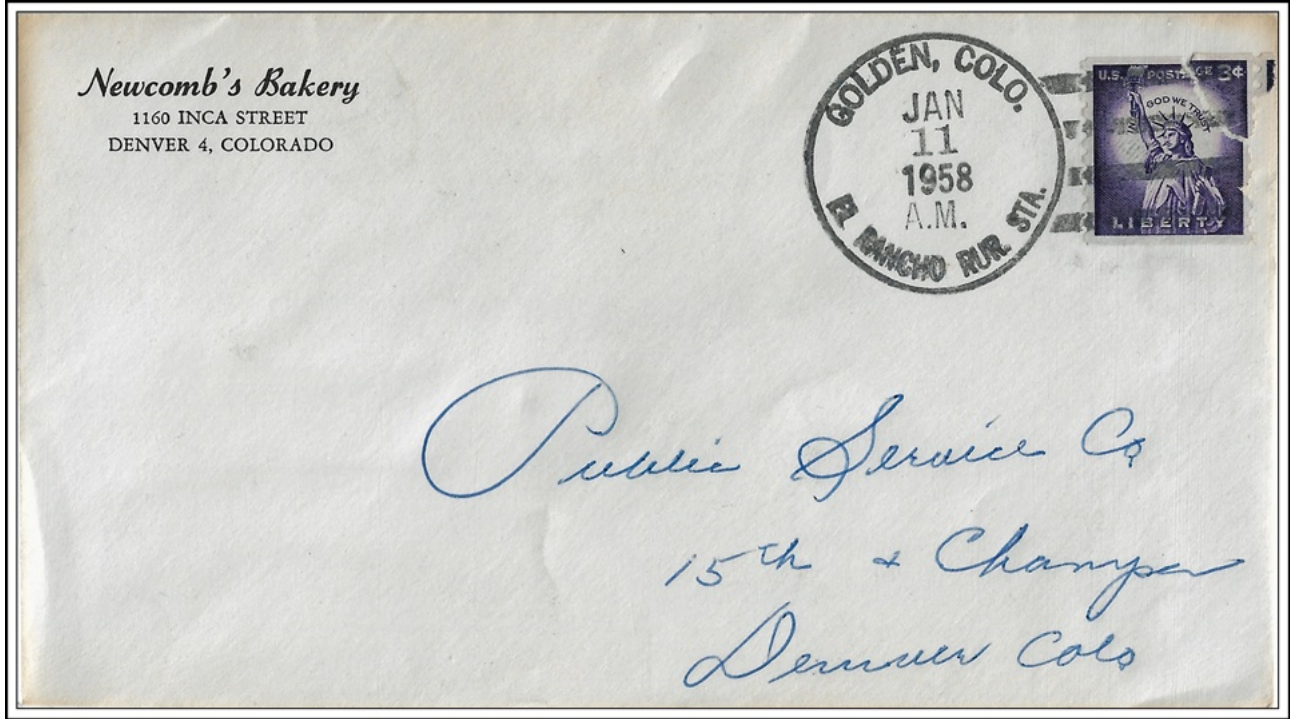 Newcomb's Bakery
1160 INCA STREET
DENVER 4, COLORADO
GOLDEN, COLO.
JAN
11
1958
A.M.
EL RANCHO RUR. STA.
U.S. POSTAGE 3¢
IN GOD WE TRUST
LIBERTY
Public Service Co
15th & Champa
Denver Colo